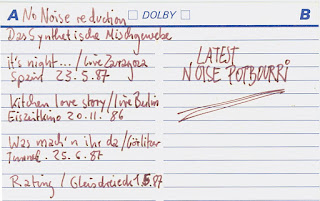 A No Noise reduction
DOLBY
B
Das Synthetische Mischgewebe
it's night.../Live Zaragoza
Spain 23.5.87
Kitchen love story/live Berlin
Eiszeitkino 20.11.'86
Was mach'n ihr da/Görlitzer
Tunnel. 25.6.87
Rating/Gleisdreieck 1.5.87
LATEST
NOISE POTBOURRI